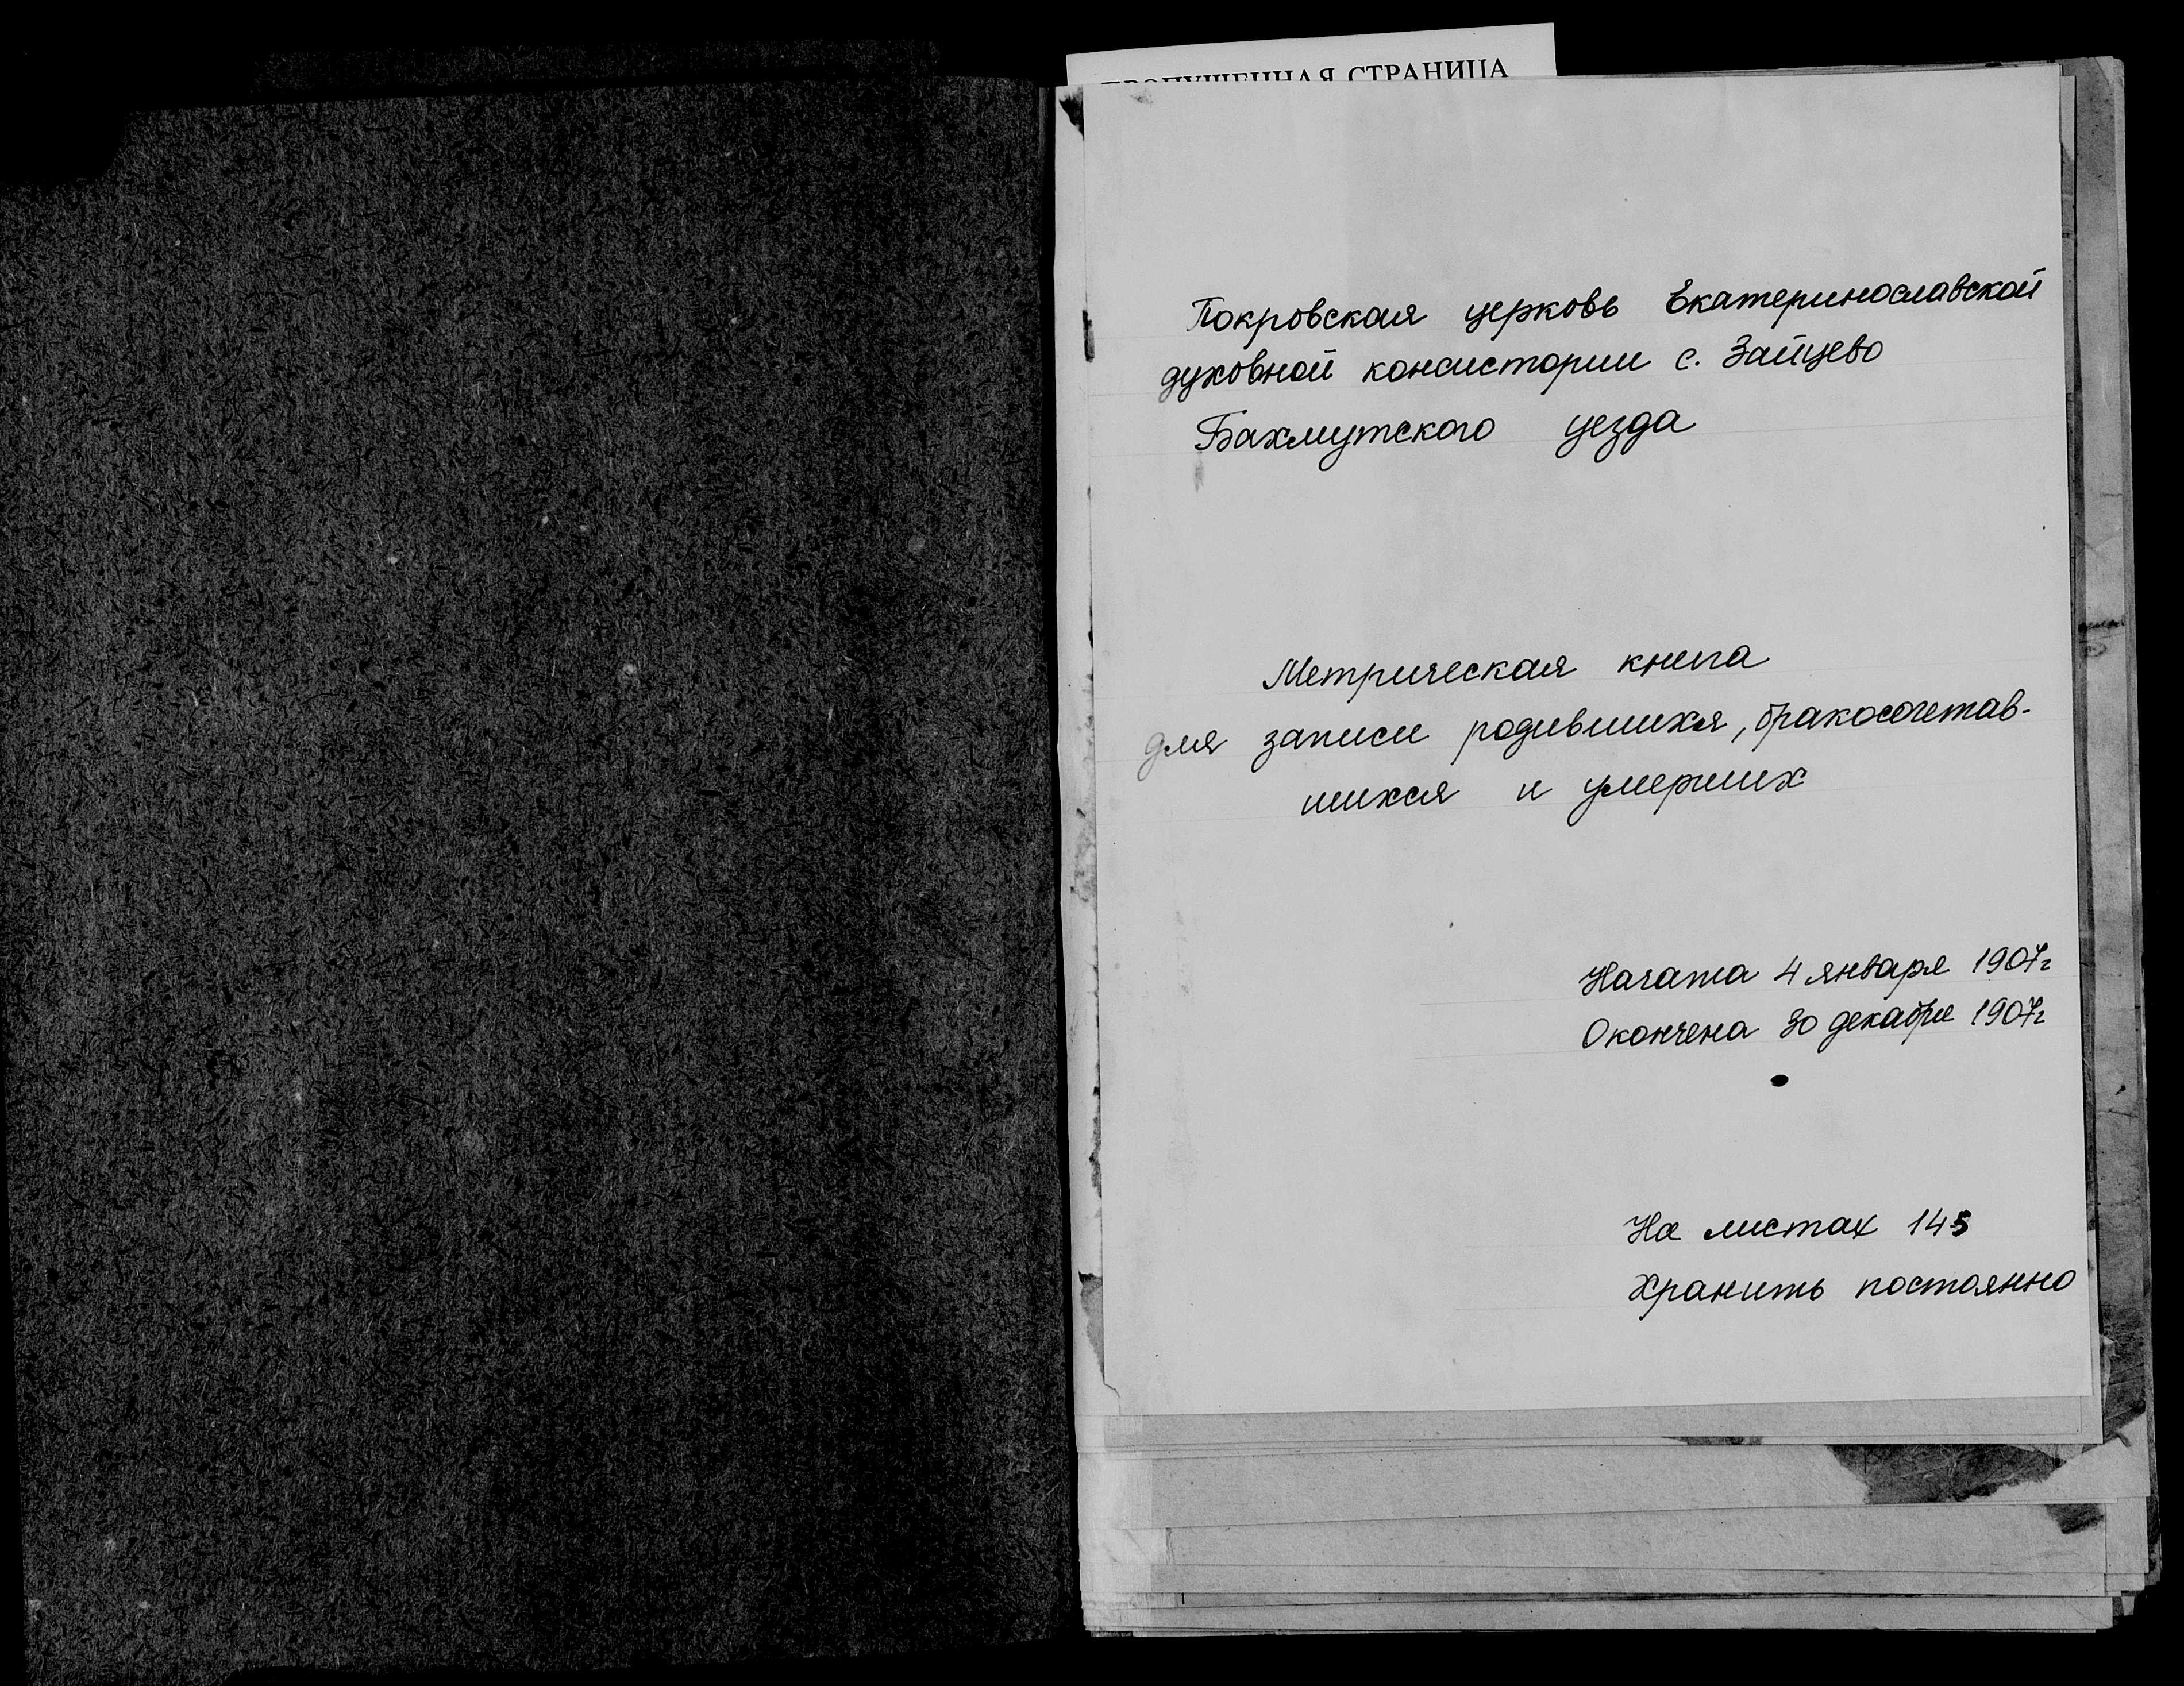 ПРОПУЩЕННАЯ СТРАНИЦА
Покровская церковь Екатеринославской
духовной консистории с. Зайцево
Бахмутского уезда
Метрическая книга
для записи родившихся, бракосочетав-
шихся и умерших
Начата 4 января 1907г
Окончена 30 декабря 1907г
На листах 145
Хранить постоянно